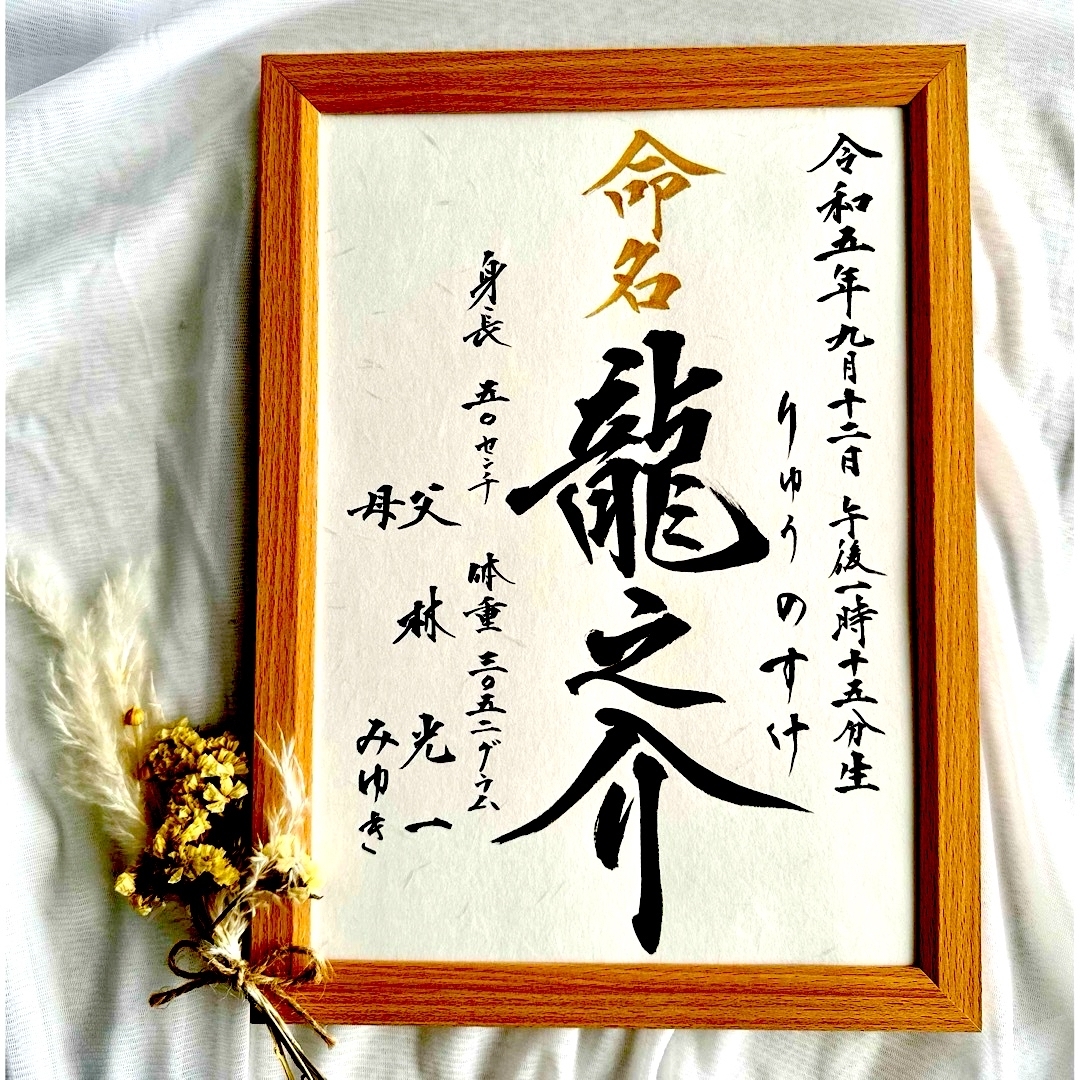 令和五年九月十二日 午後一時十五分生
りゅうのすけ
命名 龍之介
身長 五〇センチ 体重 三〇五二グラム
父 林 光一
母 みゆき